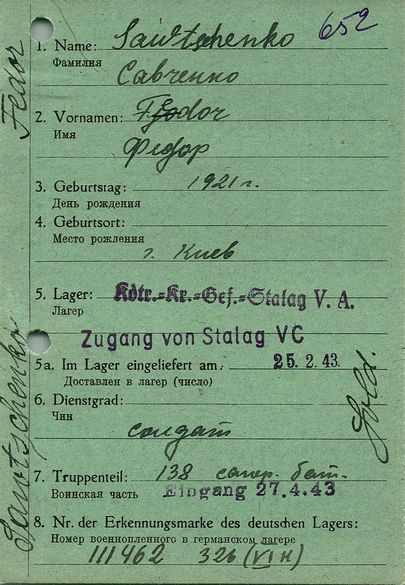 652
1. Name: Sawtschenko
Фамилия
Савченко
2. Vornamen: Fjodor
Имя
Федор
3. Geburtstag: 1921 г.
День рождения
4. Geburtsort:
Место рождения
г. Киев
5. Lager: Kdtr.-Kr.-Gef.-Stalag V. A.
Лагер
Zugang von Stalag VC
5a. Im Lager eingeliefert am: 25.2.43.
Доставлен в лагер (число)
6. Dienstgrad:
Чин
солдат
Sold.
7. Truppenteil: 138 сапер. бат.
Воинская часть Eingang 27.4.43
8. Nr. der Erkennungsmarke des deutschen Lagers:
Номер военнопленного в германском лагере
111462 326 (VI K)
Sawtschenko Fedor